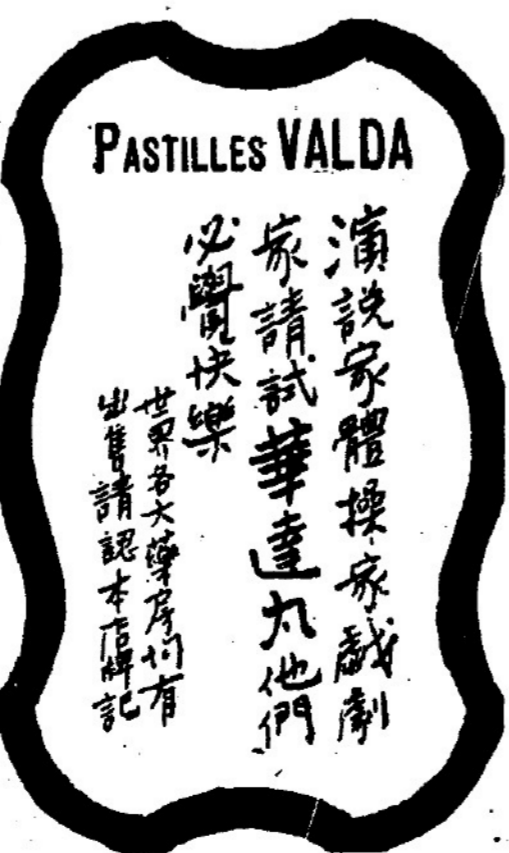 PASTILLES VALDA
演説家體操家戯劇
家請試華達丸他們
必覺快樂
世界各大藥房均有
出售請認本店牌記